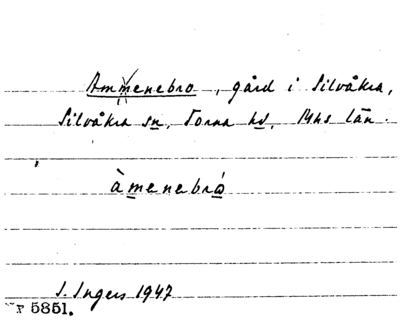 Ammenebro, gård i Silvåkra,
Silvåkra sn, Torna hd, Mhs län.
àmenebró
I. Ingers 1947
5851.